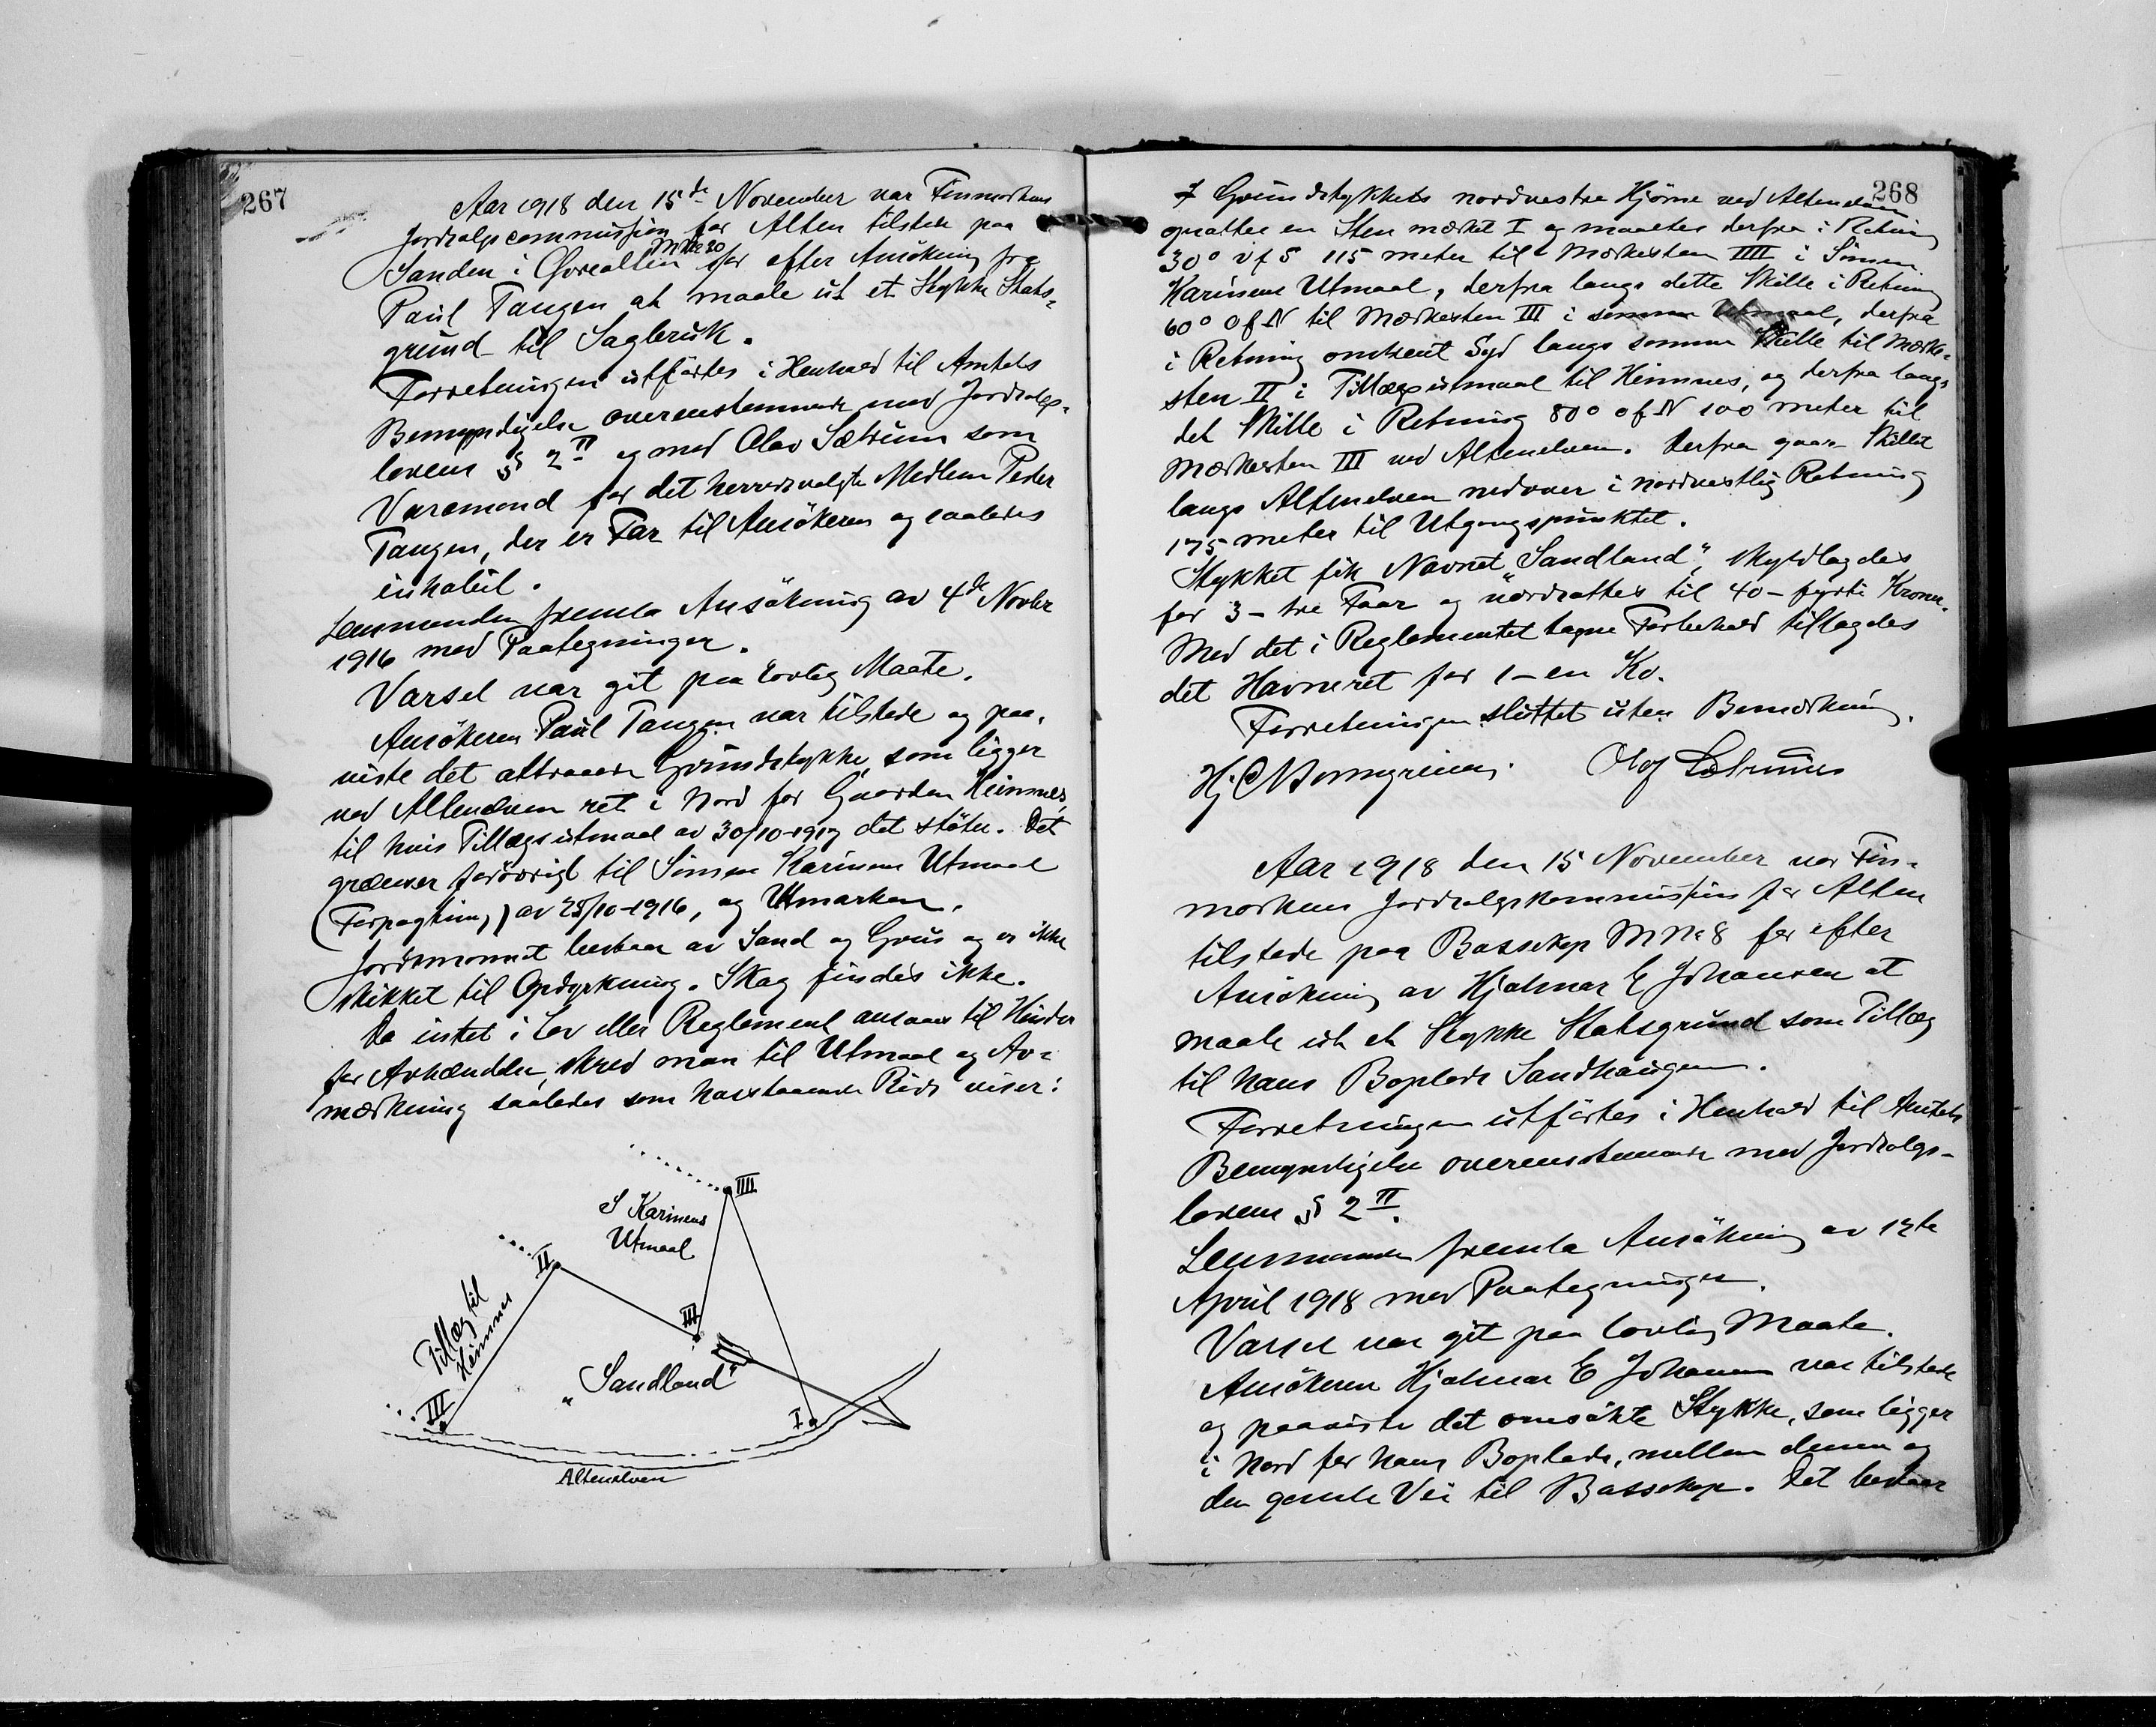 267
Aar 1918 den 15de November var Finmarkens
Jordsalgscommission for Alten tilstede paa
Sanden i Övrealten M No 20 for efter Ansökning fra
Paul Tangen at maale ut et Stykke Stats-
grund til Sagbruk.
Forretningen utförtes i Henhold til Amtets
Bemyndigelse overensstemmende med Jordsalgs-
lovens § 2 II og med Olav Sætrum som
Varamand for det herredsvalgte Medlem Peder
Tangen, der er Far til Ansökeren og saaledes
inhabil.
Lensmanden fremla Ansökning av 4de Novbr
1916 med Paategninger.
Varsel var git paa lovlig Maate.
Ansökeren Paul Tangen var tilstede og paa-
viste det attraaede Grundstykke, som ligger
ved Altenelven ret i Nord for Gaarden Heimnes,
til hvis Tillægsutmaal av 30/10-1917 det stöter. Det
grænser forövrigt til Simen Karinens Utmaal
(Forpagtning) av 25/10-1916, og Utmarken.
Jordsmonnet bestaar av Sand og Grus og er ikke
skikket til Opdyrkning. Skog findes ikke.
Da intet i Lov eller Reglement ansaaes til Hinder
for Avhændelse, skred man til Utmaal og Av-
mærkning saaledes som hosstaaende Rids viser:
IIII
S Karinens
Utmaal
II
Tillæg til
Heimnes
III
III
"Sandland"
I
Altenelven
268
I Grundstykkets nordvestre Hjörne ved Altenelven
nedsattes en Sten mærket I og maaltes derfra i Retning
30° V f S 115 meter til Mærkesten IIII i Simen
Karinens Utmaal, derfra langs dette Skille i Retning
60° O f N til Mærkesten III i samme Utmaal, derfra
i Retning omtrent Syd langs samme Skille til Mærke-
sten II i Tillægsutmaal til Heimnes, og derfra langs
det Skille i Retning 80° O f N 100 meter til
Mærkesten III ved Altenelven. Derfra gaar Skillet
langs Altenelven nedover i nordvestlig Retning
175 meter til Utgangspunktet.
Stykket fik Navnet "Sandland", skyldlagdes
for 3 – tre Faar og værdsattes til 40 – fyrti Kroner.
Med det i Reglementet tagne Forbehold tillagdes
det Havneret for 1 – en Ko.
Forretningen sluttet uten Bemærkning.
Hj. Olav Sætrum
Aar 1918 den 15 November var Fin-
markens Jordsalgskommission for Alten
tilstede paa Bossekop M No 8 for efter
Ansökning av Hjalmar E Johansen at
maale ut et Stykke Statsgrund som Tillæg
til hans Boplads Sandhaugen.
Forretningen utförtes i Henhold til Amtets
Bemyndigelse overensstemmende med Jordsalgs-
lovens § 2 II.
Lensmanden fremla Ansökning av 12te
April 1918 med Paategninger.
Varsel var git paa lovlig Maate.
Ansökeren Hjalmar E Johansen var tilstede
og paaviste det omsökte Stykke, som ligger
i Nord for hans Boplads, mellem denne og
den gamle Vei til Bossekop. Det bestaar